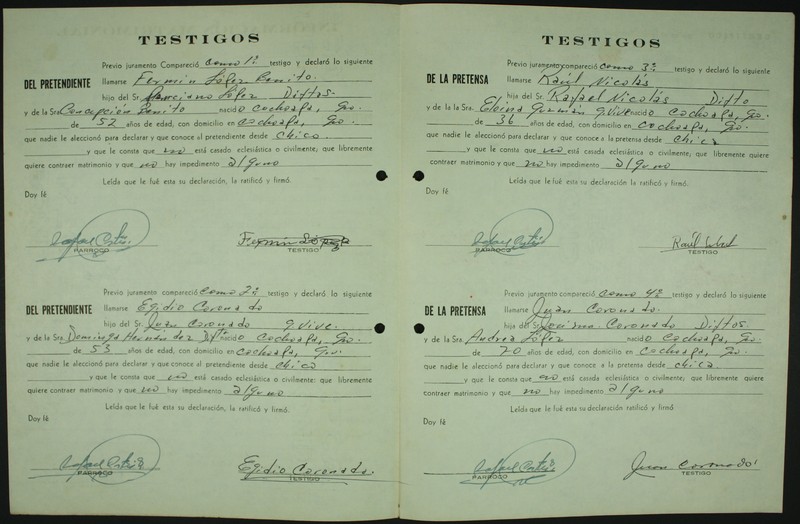 TESTIGOS
Previo juramento Compareció como 1º testigo y declaró lo siguiente
DEL PRETENDIENTE llamarse Fermín López Benito.
hijo del Sr. López Diftos
y de la Sra. Concepción Benito nacido Cochoapa, Gro.
de 52 años de edad, con domicilio en Cochoapa, Gro.
que nadie le aleccionó para declarar y que conoce al pretendiente desde chico
y que le consta que no está casado eclesiástica o civilmente; que libremente
quiere contraer matrimonio y que no hay impedimento alguno
Leída que le fué esta su declaración, la ratificó y firmó.
Doy fé
PARROCO
Fermín López
TESTIGO
Previo juramento compareció como 2º testigo y declaró lo siguiente
DEL PRETENDIENTE llamarse Egidio Coronado
hijo del Sr. Juan Coronado q vive.
y de la Sra. Dominga Hernández Dfta nacido Cochoapa, Gro.
de 53 años de edad, con domicilio en Cochoapa, Gro.
que nadie le aleccionó para declarar y que conoce al pretendiente desde chico
y que le consta que no está casado eclesiástica o civilmente: que libremente
quiere contraer matrimonio y que no hay impedimento alguno
Leída que le fué esta su declaración, la ratificó y firmó.
Doy fé
PARROCO
Egidio Coronado.
TESTIGO
TESTIGOS
Previo juramento compareció como 3º testigo y declaró lo siguiente
DE LA PRETENSA llamarse Raúl Nicolás
hijo del Sr. Rafael Nicolás Difto
y de la la Sra. Eloina Guzmán q vive nacido Cochoapa, Gro.
de 36 años de edad, con domicilio en Cochoapa, Gro.
que nadie le aleccionó para declarar y que conoce a la pretensa desde chica
y que le consta que no está casada eclesiástica o civilmente; que libremente quiere
contraer matrimonio y que no hay impedimento alguno
Leída que le fué esta su declaración la ratificó y firmó.
Doy fé
PARROCO
Raúl
TESTIGO
Previo juramento compareció como 4º testigo y declaró lo siguiente
DE LA PRETENSA llamarse Juan Coronado.
hijo del Sr. Coronado Diftos
y de la Sra. Andrea López nacido Cochoapa, Gro.
de 70 años de edad, con domicilio en Cochoapa, Gro.
que nadie le aleccionó para declarar y que conoce a la pretensa desde chica
y que le consta que no está casada eclesiástica o civilmente; que libremente quiere
contraer matrimonio y que no hay impedimento alguno
Leída que le fué esta su declaración la ratificó y firmó
Doy fé
PARROCO
Juan Coronado
TESTIGO